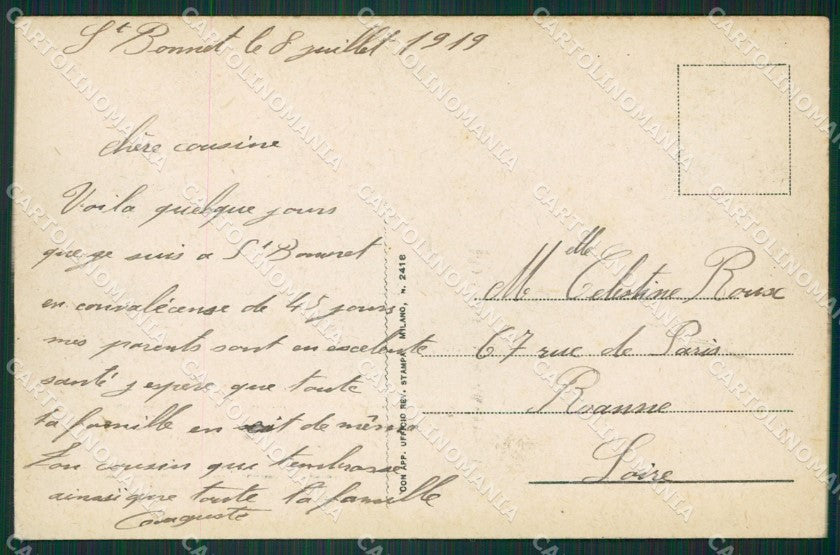 St Bonnet le 8 juillet 1919
chère cousine
Voila quelque jours
que ge suis a St Bonnet
en convalécense de 45 jours
mes parents sont en excelente
santé j espère que toute
ta famille en est de même
Ton cousin qui tembrasse
ainsi que toute ta famille
CON APP. UFFICIO REV. STAMPA, MILANO, N. 2418
Mlle Celestine Roux
67 rue de Paris
Roanne
Loire
CARTOLINOMANIA